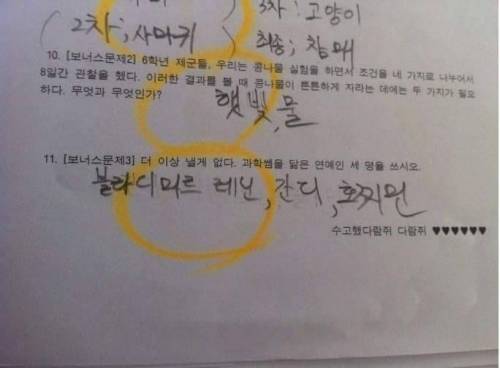 3차 : 고양이
( 2차 ; 사마귀 ) 최종 ; 참매
10. [보너스문제2] 6학년 제군들, 우리는 콩나물 실험을 하면서 조건을 네 가지로 나누어서
8일간 관찰을 했다. 이러한 결과를 볼 때 콩나물이 튼튼하게 자라는 데에는 두 가지가 필요
하다. 무엇과 무엇인가?
햇빛, 물
11. [보너스문제3] 더 이상 낼게 없다. 과학쌤을 닮은 연예인 세 명을 쓰시오.
블라디미르 레닌, 간디, 호찌민
수고했다람쥐 다람쥐 ♥♥♥♥♥♥